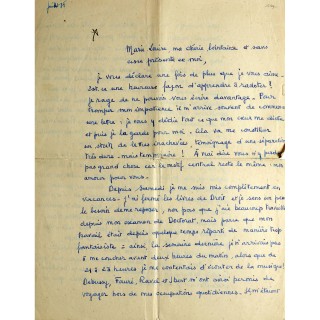 Juillet 54
Marie Laure ma chérie lointaine et sans
cesse présente en moi,
je vous déclare une fois de plus que je vous aime.
Est-ce une heureuse façon d'apprendre à radoter !
Je rage de ne pouvoir vous écrire davantage. Pour
tromper mon impatience, il m'arrive souvent de commencer
une lettre : je vous y décris tout ce que mon cœur me dicte
et puis je la garde pour moi. Cela va me constituer
un stock de lettres inachevées, témoignage d'une séparation
très dure - mais temporaire ! À vrai dire vous n'y
pas grand chose car le motif central reste le même : mon
amour pour vous.
Depuis Samedi je me suis mis complètement en
vacances. J'ai fermé les livres de Droit et je sens un peu
le besoin de me reposer, non pas que j'aie beaucoup travaillé
depuis mon examen de Doctorat mais parce que mon
travail était depuis quelque temps réparti de manière trop
fantaisiste : ainsi la semaine dernière je n'arrivais pas
à me coucher avant deux heures du matin, alors que de
21 à 23 heures je me contentais d'écouter de la musique !
Debussy, Fauré, Ravel et Ibert m'ont ainsi permis de
voyager loin de mes occupations quotidiennes. Ils m'étaient